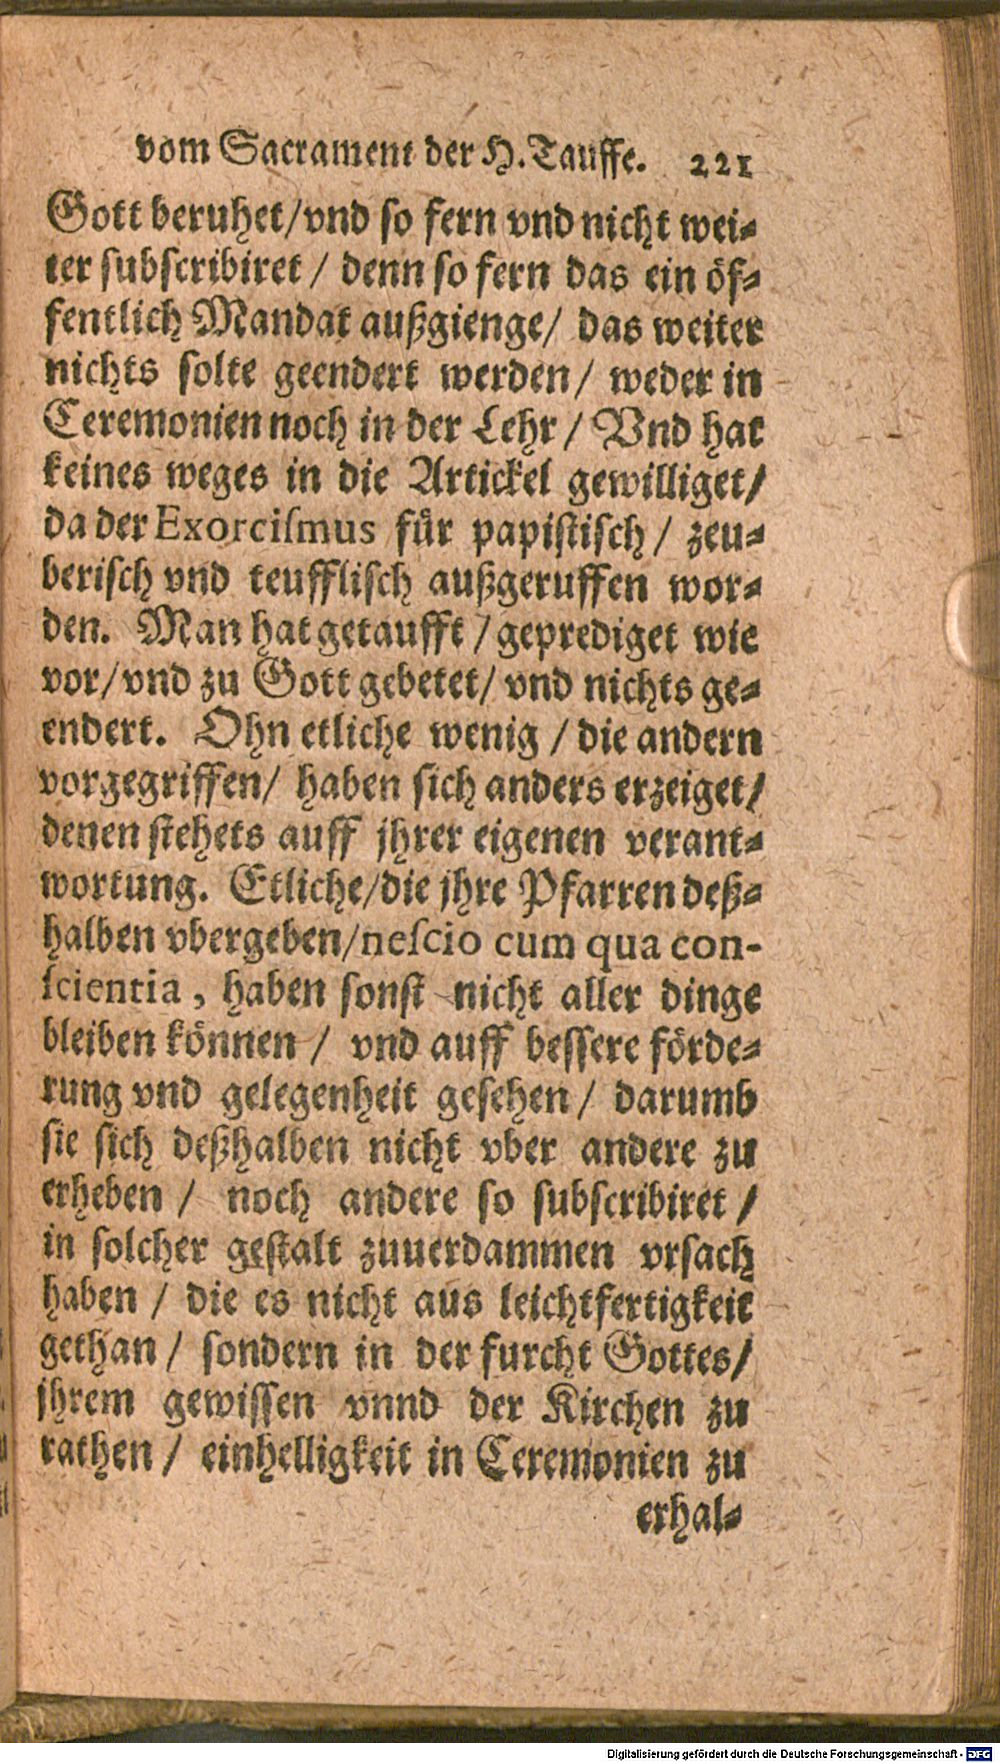 vom Sacrament der H. Tauffe. 221
Gott beruhet/vnd so fern vnd nicht wei⸗
ter subscribiret / denn so fern das ein öf⸗
fentlich Mandat außgienge/ das weiter
nichts solte geendert werden/ weder in
Ceremonien noch in der Lehr / Vnd hat
keines weges in die Artickel gewilliget/
da der Exorciſmus für papistisch / zeu⸗
berisch vnd teufflisch außgeruffen wor⸗
den. Man hat getaufft / geprediget wie
vor/vnd zu Gott gebetet/ vnd nichts ge⸗
endert. Ohn etliche wenig / die andern
vorgegriffen/ haben sich anders erzeiget/
denen stehets auff jhrer eigenen verant⸗
wortung. Etliche/die jhre Pfarren deß⸗
halben vbergeben/neſcio cum qua con-
ſcientia, haben sonst nicht aller dinge
bleiben können / vnd auff bessere förde⸗
rung vnd gelegenheit gesehen / darumb
sie sich deßhalben nicht vber andere zu
erheben / noch andere so subscribiret /
in solcher gestalt zuuerdammen vrsach
haben / die es nicht aus leichtfertigkeit
gethan / sondern in der furcht Gottes/
jhrem gewissen vnnd der Kirchen zu
rathen / einhelligkeit in Ceremonien zu
erhal⸗
Digitalisierung gefördert durch die Deutsche Forschungsgemeinschaft - DFG